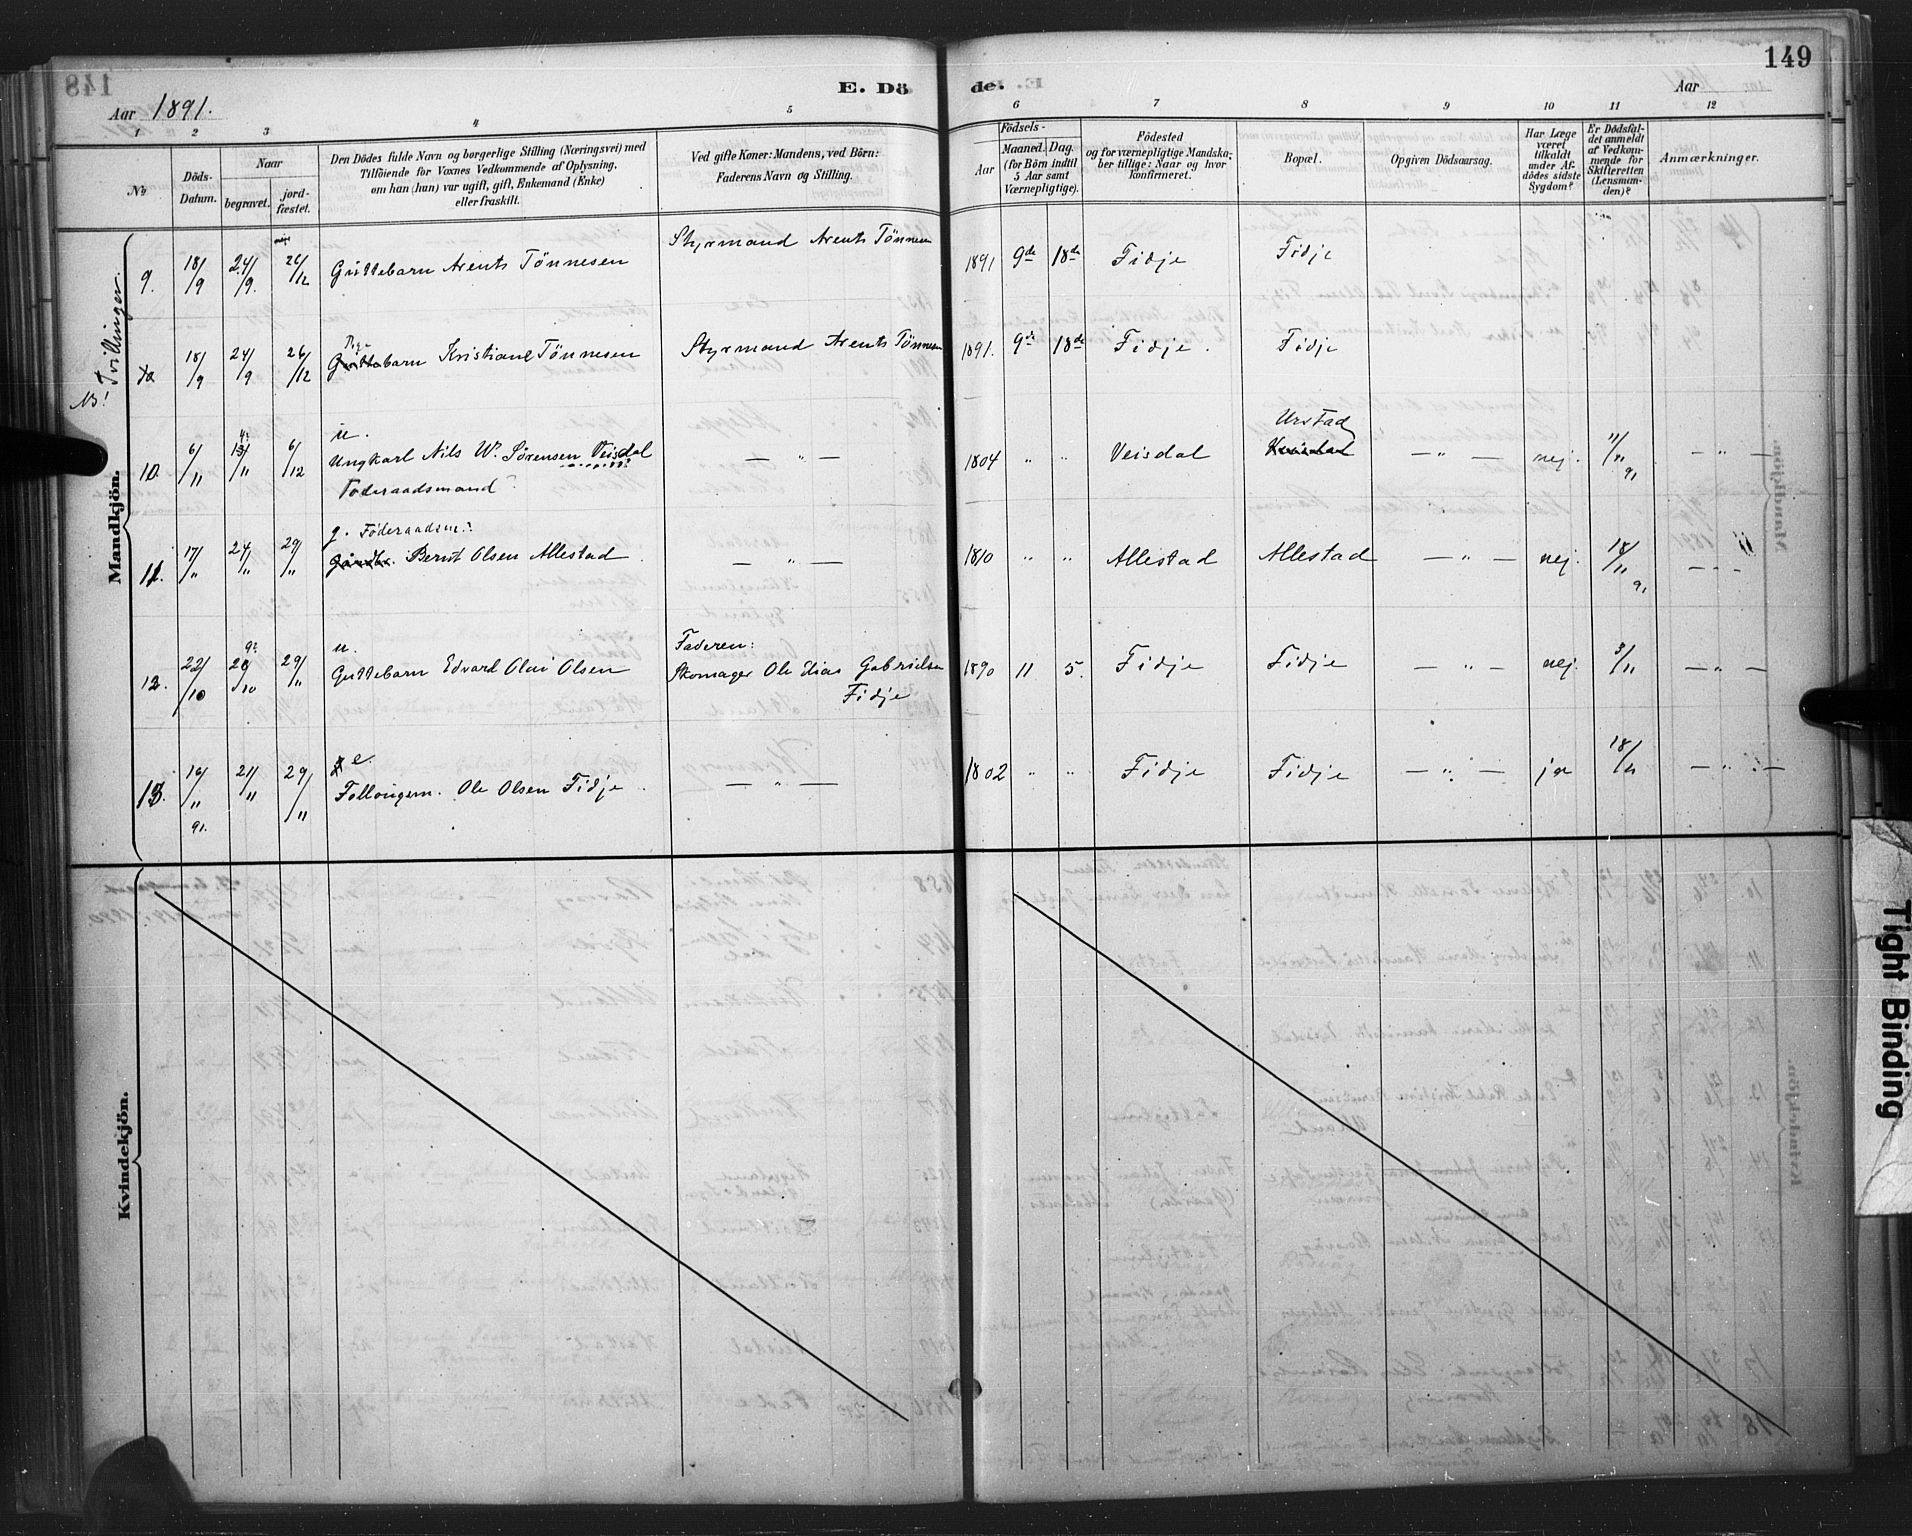 149
E. Döde.
Aar 1891.
Aar
1 2 3 4 5 6 7 8 9 10 11 12
No
Döds-Datum.
Naar
begravet.
jord-fæstet.
Den Dödes fulde Navn og borgerlige Stilling (Næringsvei) med
Tilföiende for Voxnes Vedkommende af Oplysning,
om han (hun) var ugift, gift, Enkemand (Enke)
eller fraskilt.
Ved gifte Koner: Mandens, ved Börn:
Faderens Navn og Stilling.
Födsels-
Aar
Maaned. Dag.
(for Börn indtil
5 Aar samt
Værnepligtige).
Födested
og for værnepligtige Mandska-
ber tillige: Naar og hvor
konfirmeret.
Bopæl.
Opgiven Dödsaarsag.
Har Læge
været
tilkaldt
under Af-
dödes sidste
Sygdom?
Er Dödsfal-
det anmeldt
af Vedkom-
mende for
Skifteretten
(Lensman-
den)?
Anmærkninger.
Mandkjön.
NB! Tvillinger.
9. 18/9 24/9. 26/12 Guttebarn Arents Tönnesen Styrmand Arents Tönnesen 1891 9de 18de Fidje Fidje
18/9 24/9 26/12 Guttebarn Kristiane Tönnesen Styrmand Arents Tönnesen 1891. 9de 18de Fidje. Fidje
u.
Urstad
10. 6/11 6/12 Ungkarl Nils W. Sörensen Veisdal — " — 1804 " " Veisdal — " — nej. 11/11 91 — " —
Föderaadsmand
g. Föderaadsm.
11. 17/" 24/" 29/" Bernt Olsen Allestad — " — 1810 " " Allestad Allestad — " — nej. 18/11 91 — " —
u.
Faderen:
12. 22/10 28/10 29/" Guttebarn Edvard Olai Olsen Skomager Ole Elias Gabrielsen 1890 11 5. Fidje Fidje — " — nej. 3/11 — " —
Fidje
e.
13. 16/" 91. 21/" 29/" Ole Olsen Fidje. — " — 1802 " " Fidje Fidje — " — ja 18/11 — " —
Kvindekjön.
Tight Binding